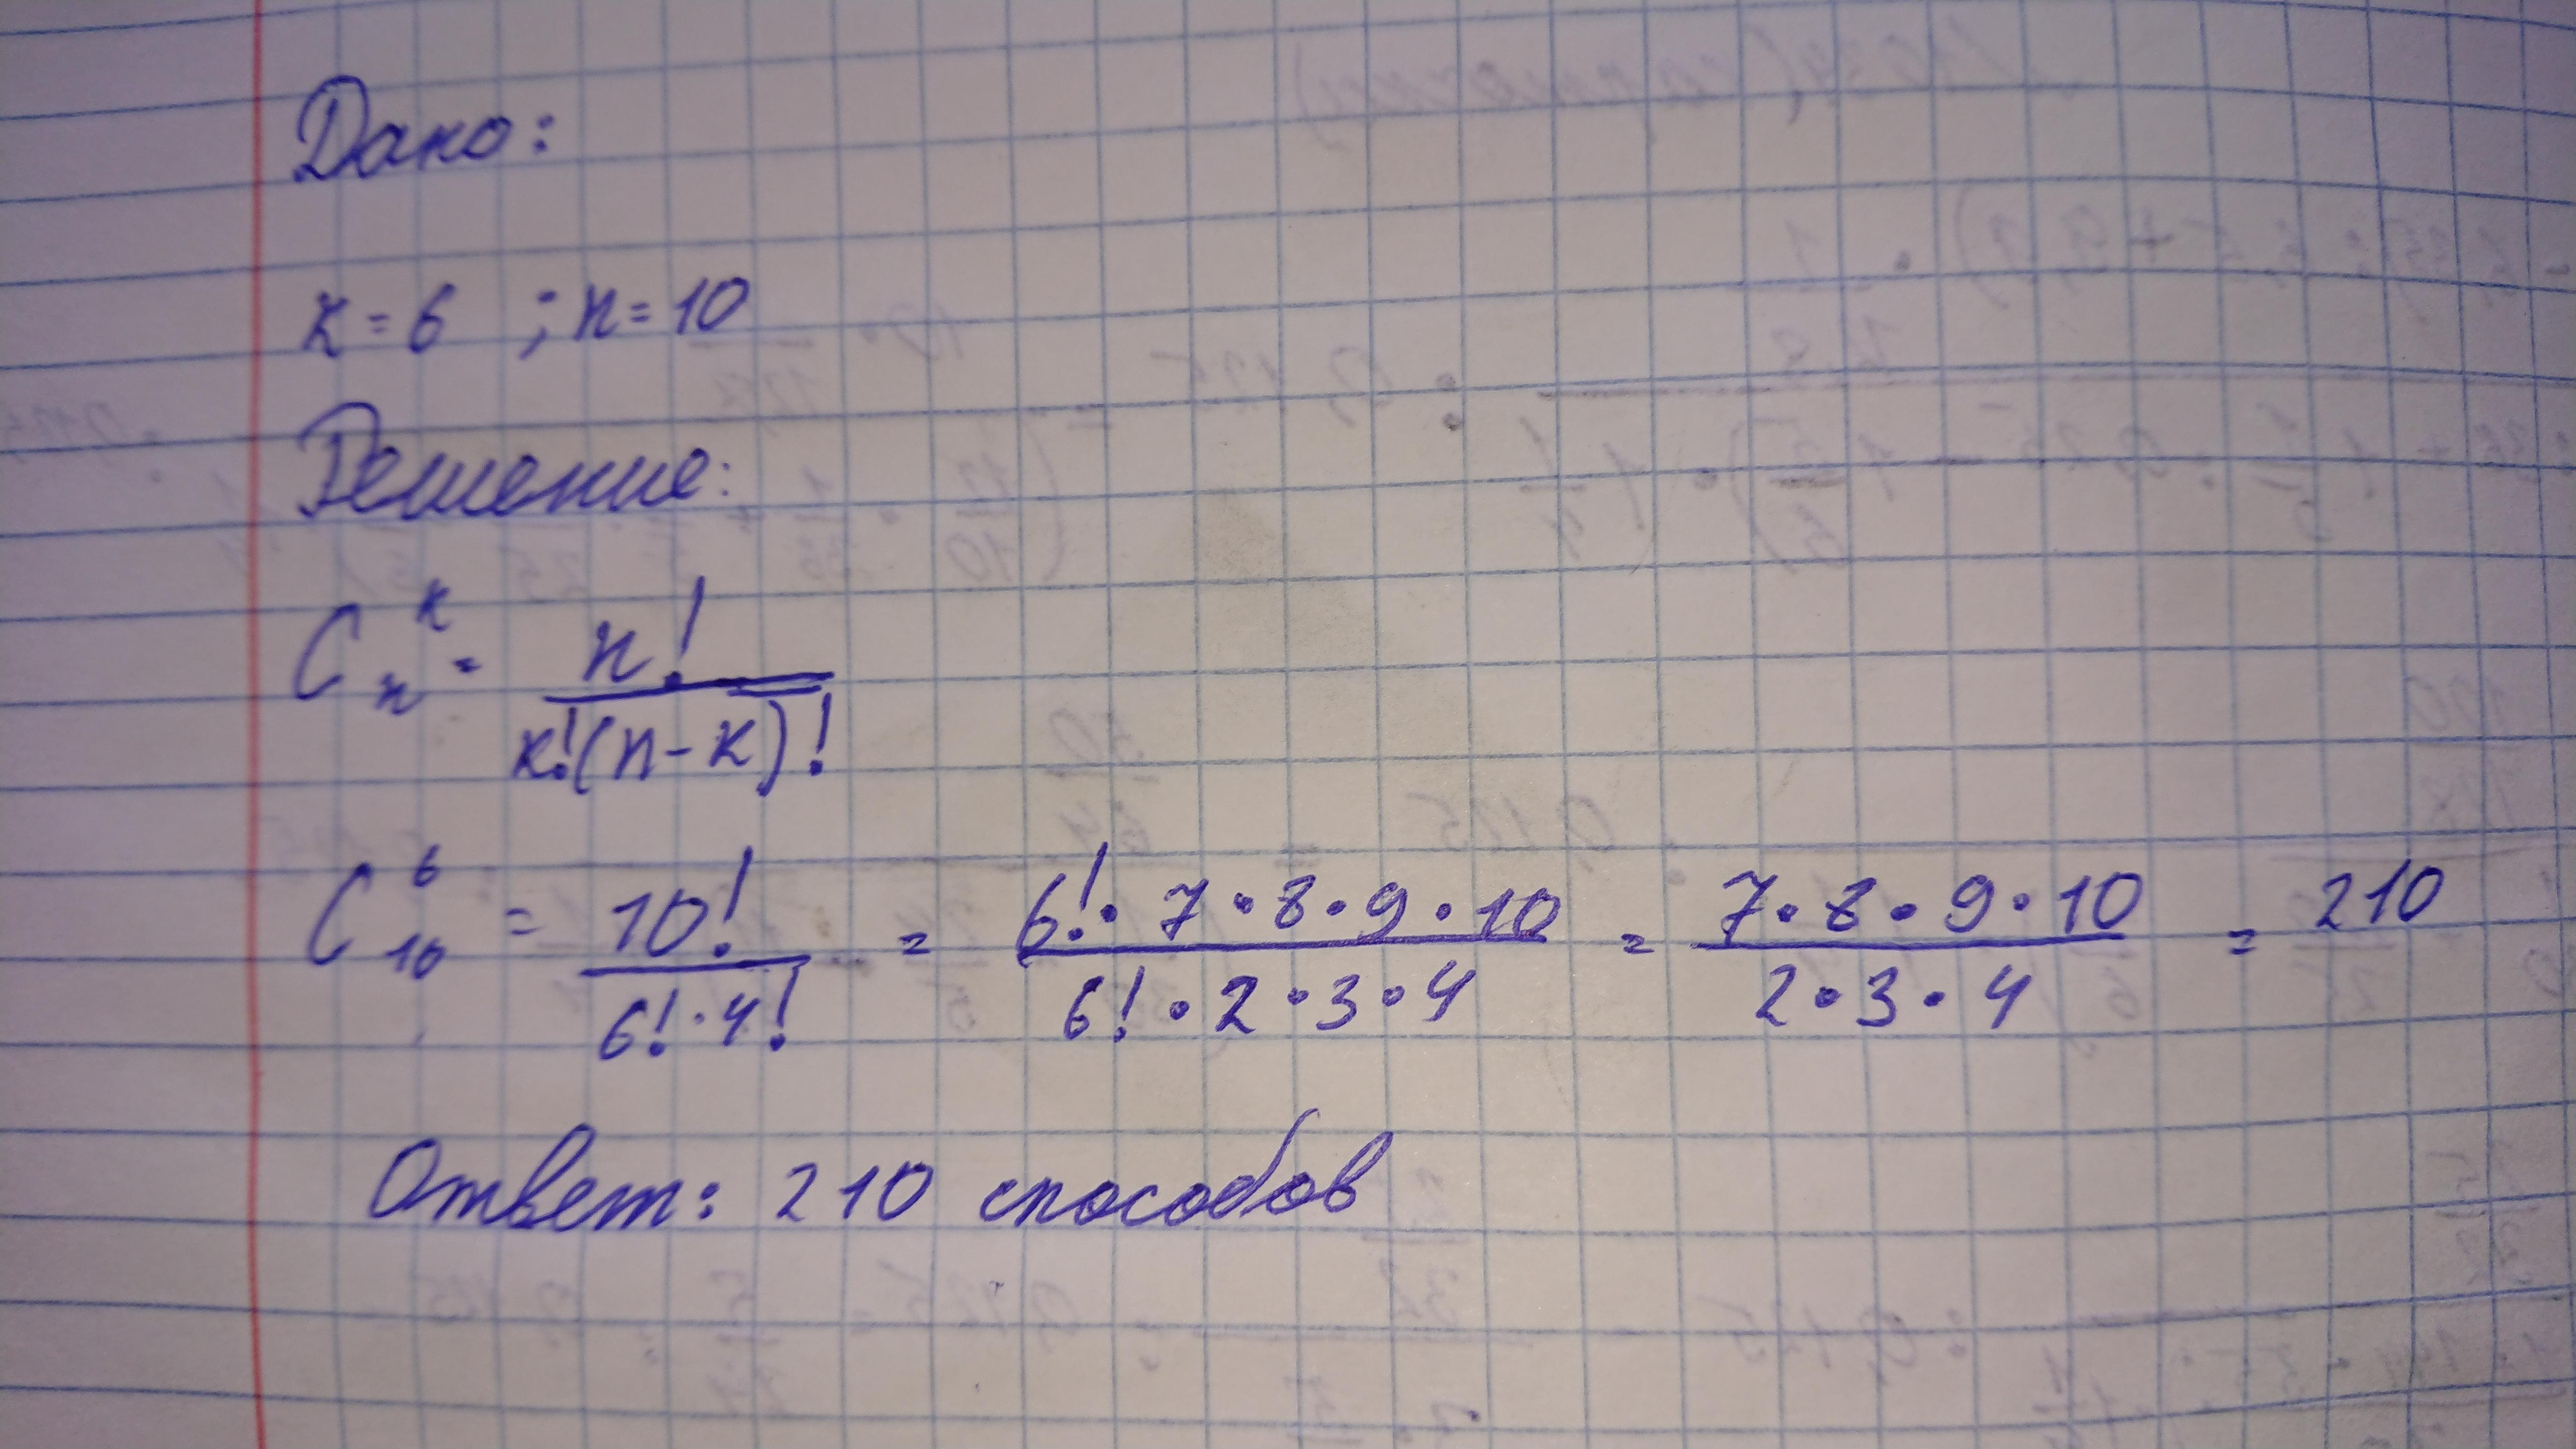 Дано:
k = 6 ; n = 10
Решение:
C_n^k = n! / k!(n-k)!
C_10^6 = 10! / 6!·4! = 6!·7·8·9·10 / 6!·2·3·4 = 7·8·9·10 / 2·3·4 = 210
Ответ: 210 способов